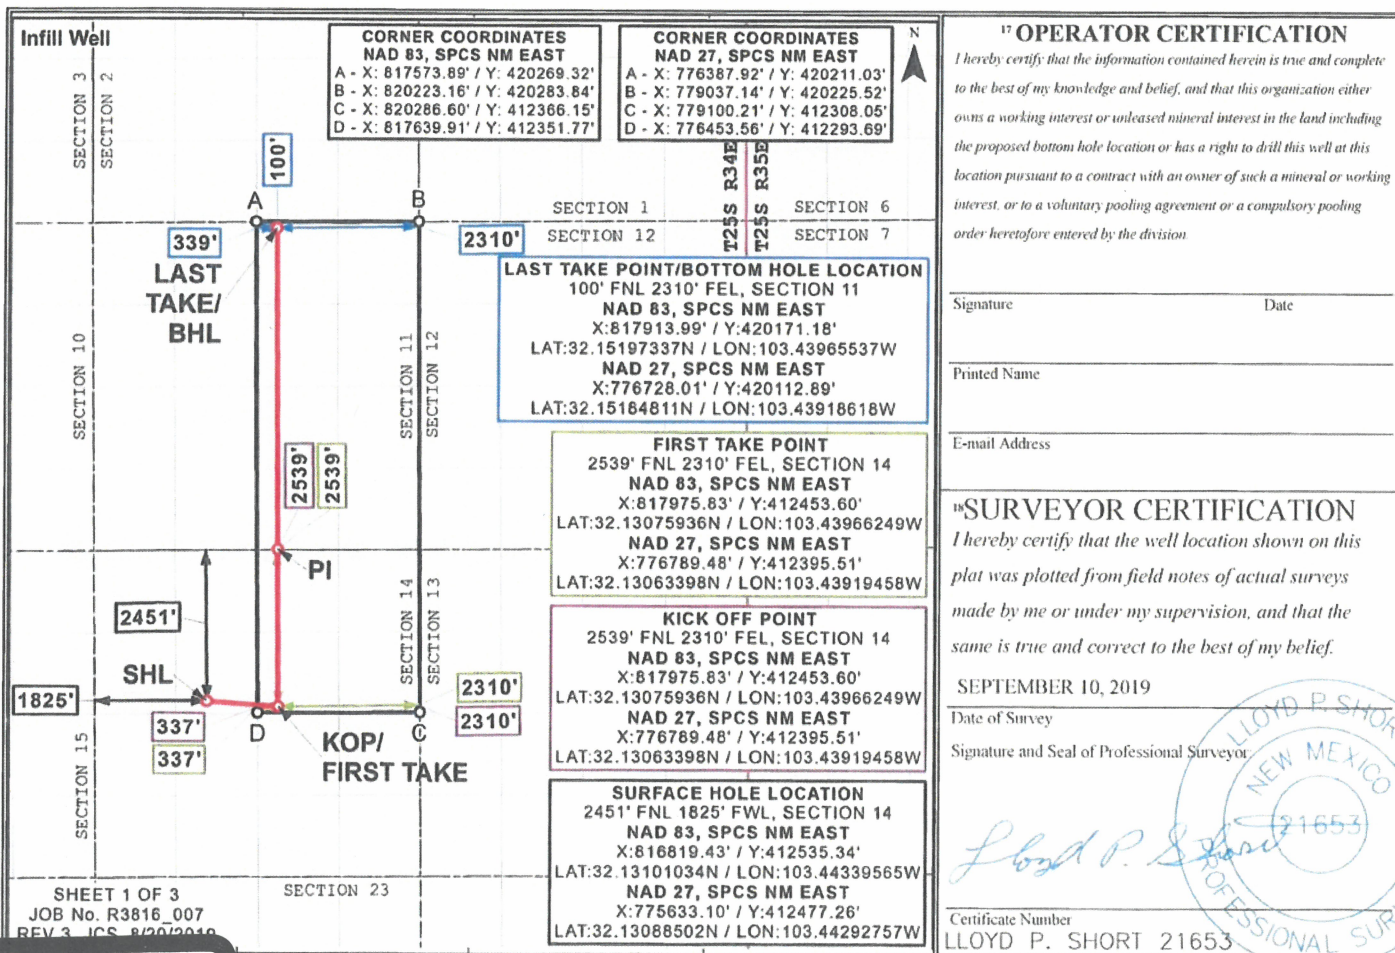 Infill Well
SECTION 3
SECTION 2
CORNER COORDINATES
NAD 83, SPCS NM EAST
A - X: 817573.89' / Y: 420269.32'
B - X: 820223.16' / Y: 420283.84'
C - X: 820286.60' / Y: 412366.15'
D - X: 817639.91' / Y: 412351.77'
CORNER COORDINATES
NAD 27, SPCS NM EAST
A - X: 776387.92' / Y: 420211.03'
B - X: 779037.14' / Y: 420225.52'
C - X: 779100.21' / Y: 412308.05'
D - X: 776453.56' / Y: 412293.69'
N
100'
T25S R34E
T25S R35E
A
B
SECTION 1
SECTION 6
SECTION 12
SECTION 7
339'
2310'
LAST
TAKE/
BHL
SECTION 10
SECTION 11
SECTION 12
LAST TAKE POINT/BOTTOM HOLE LOCATION
100' FNL 2310' FEL, SECTION 11
NAD 83, SPCS NM EAST
X:817913.99' / Y:420171.18'
LAT:32.15197337N / LON:103.43965537W
NAD 27, SPCS NM EAST
X:776728.01' / Y:420112.89'
LAT:32.15184811N / LON:103.43918618W
2539'
2539'
FIRST TAKE POINT
2539' FNL 2310' FEL, SECTION 14
NAD 83, SPCS NM EAST
X:817975.83' / Y:412453.60'
LAT:32.13075936N / LON:103.43966249W
NAD 27, SPCS NM EAST
X:776789.48' / Y:412395.51'
LAT:32.13063398N / LON:103.43919458W
PI
2451'
SECTION 14
SECTION 13
SHL
1825'
2310'
2310'
337'
337'
D
C
KOP/
FIRST TAKE
SECTION 15
KICK OFF POINT
2539' FNL 2310' FEL, SECTION 14
NAD 83, SPCS NM EAST
X:817975.83' / Y:412453.60'
LAT:32.13075936N / LON:103.43966249W
NAD 27, SPCS NM EAST
X:776789.48' / Y:412395.51'
LAT:32.13063398N / LON:103.43919458W
SURFACE HOLE LOCATION
2451' FNL 1825' FWL, SECTION 14
NAD 83, SPCS NM EAST
X:816819.43' / Y:412535.34'
LAT:32.13101034N / LON:103.44339565W
NAD 27, SPCS NM EAST
X:775633.10' / Y:412477.26'
LAT:32.13088502N / LON:103.44292757W
SECTION 23
SHEET 1 OF 3
JOB No. R3816_007
REV 3 JCS 8/20/2019
17 OPERATOR CERTIFICATION
I hereby certify that the information contained herein is true and complete
to the best of my knowledge and belief, and that this organization either
owns a working interest or unleased mineral interest in the land including
the proposed bottom hole location or has a right to drill this well at this
location pursuant to a contract with an owner of such a mineral or working
interest, or to a voluntary pooling agreement or a compulsory pooling
order heretofore entered by the division.
Signature Date
Printed Name
E-mail Address
18 SURVEYOR CERTIFICATION
I hereby certify that the well location shown on this
plat was plotted from field notes of actual surveys
made by me or under my supervision, and that the
same is true and correct to the best of my belief.
SEPTEMBER 10, 2019
Date of Survey
Signature and Seal of Professional Surveyor
Lloyd P. Short
LLOYD P. SHOR
NEW MEXICO
21653
PROFESSIONAL SUR
Certificate Number
LLOYD P. SHORT 21653